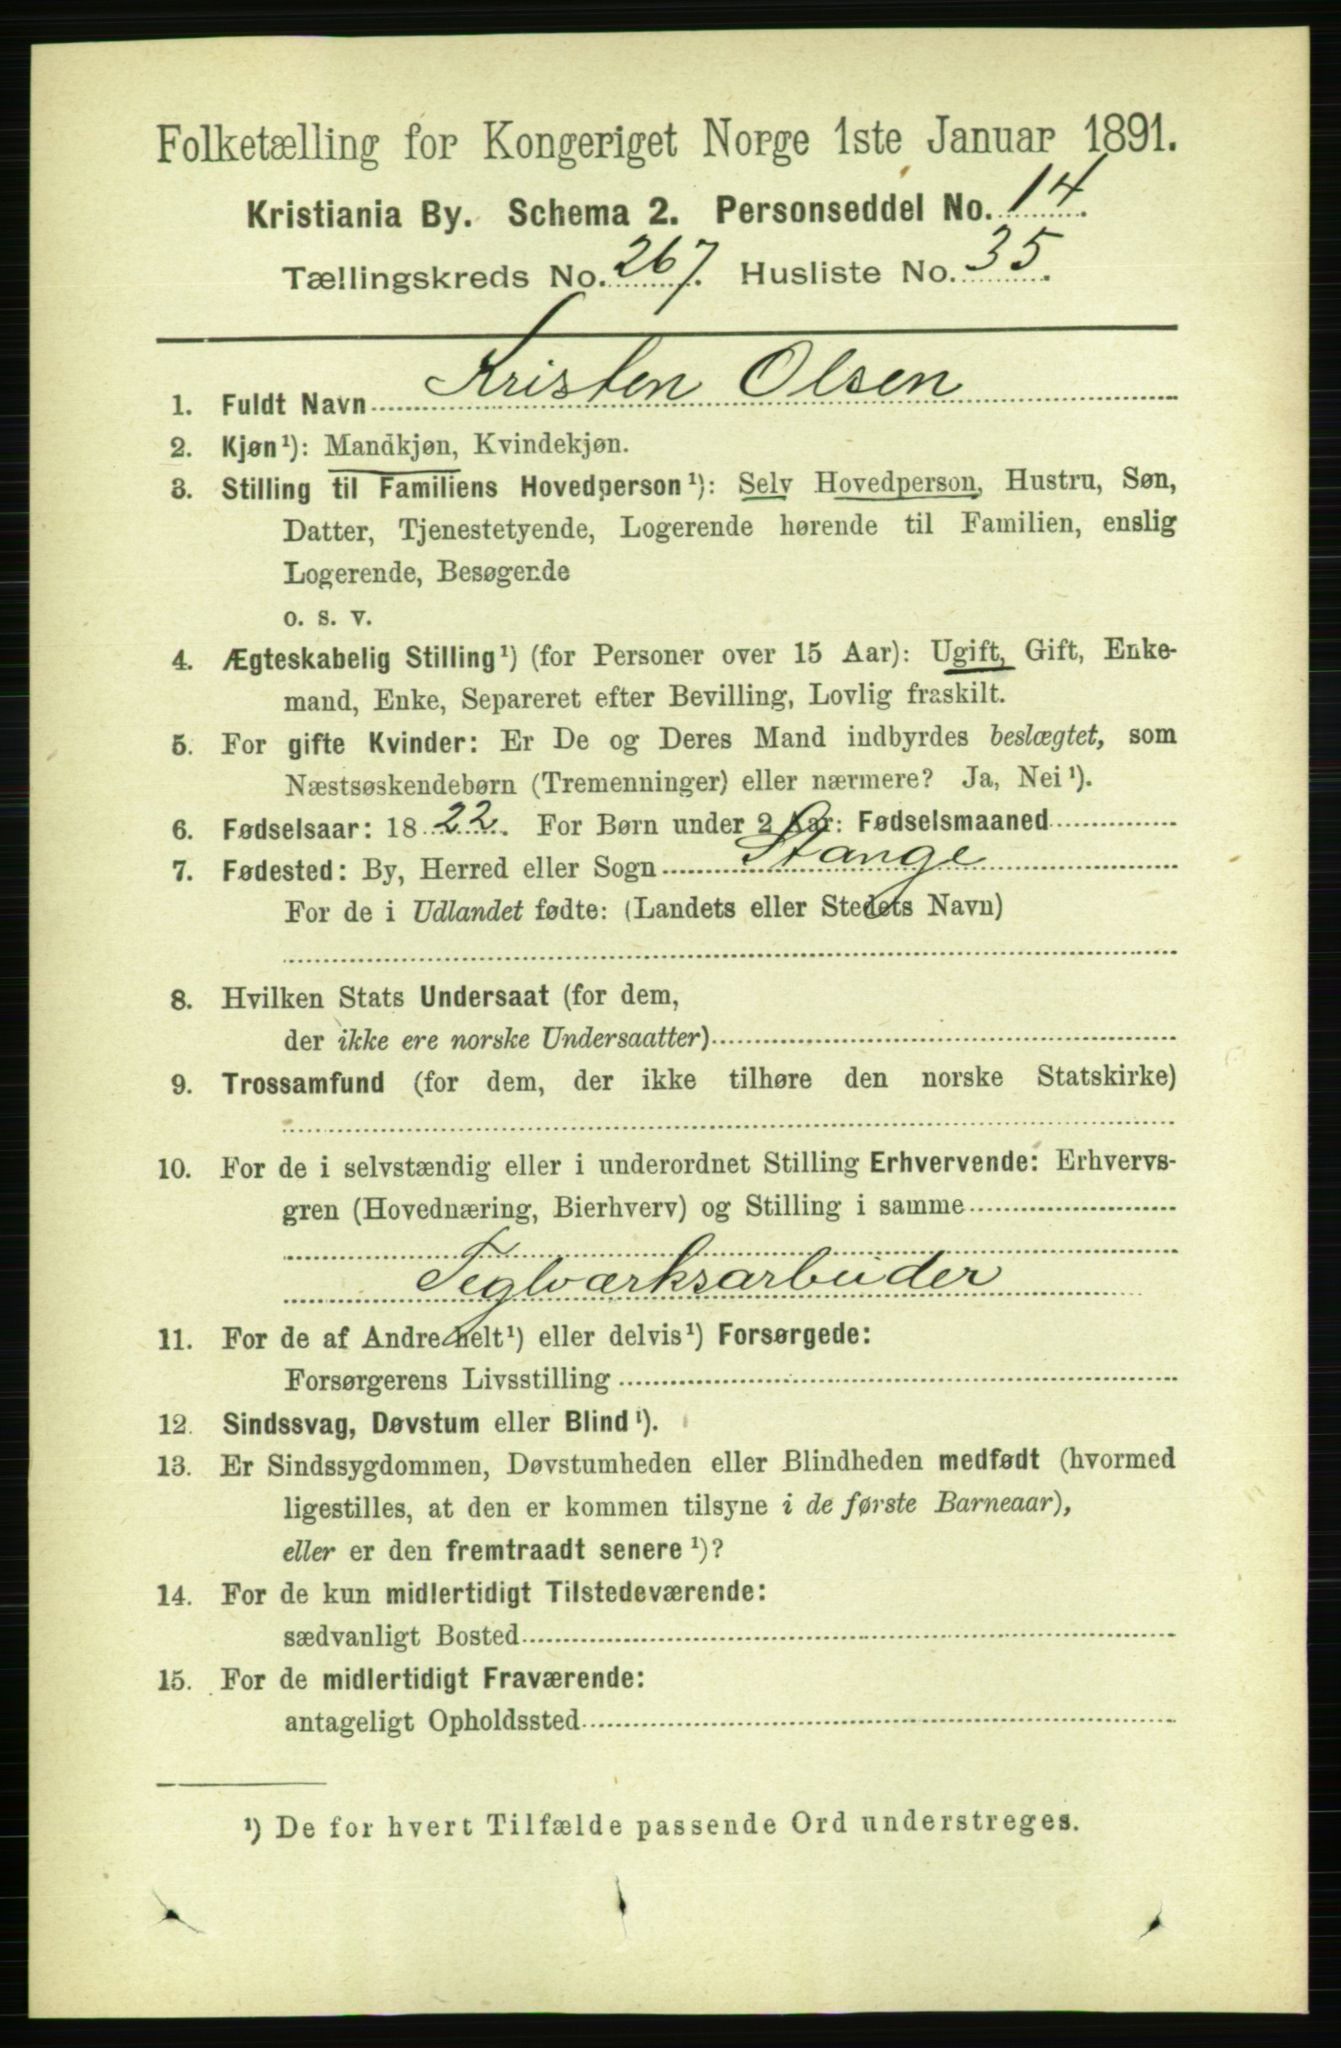 Folketælling for Kongeriget Norge 1ste Januar 1891.
Kristiania By. Schema 2. Personseddel No. 14.
Tællingskreds No. 267. Husliste No. 35.
1. Fuldt Navn Kristen Olsen
2. Kjøn¹): Mandkjøn, Kvindekjøn.
3. Stilling til Familiens Hovedperson¹): Selv Hovedperson, Hustru, Søn,
Datter, Tjenestetyende, Logerende hørende til Familien, enslig
Logerende, Besøgende
o. s. v.
4. Ægteskabelig Stilling¹) (for Personer over 15 Aar): Ugift, Gift, Enke-
mand, Enke, Separeret efter Bevilling, Lovlig fraskilt.
5. For gifte Kvinder: Er De og Deres Mand indbyrdes beslægtet, som
Næstsøskendebørn (Tremenninger) eller nærmere? Ja, Nei¹).
6. Fødselsaar: 1822. For Børn under 2 Aar: Fødselsmaaned
7. Fødested: By, Herred eller Sogn Stange
For de i Udlandet fødte: (Landets eller Stedets Navn)
8. Hvilken Stats Undersaat (for dem,
der ikke ere norske Undersaatter)
9. Trossamfund (for dem, der ikke tilhøre den norske Statskirke)
10. For de i selvstændig eller i underordnet Stilling Erhvervende: Erhvervs-
gren (Hovednæring, Bierhverv) og Stilling i samme
Teglværksarbeider
11. For de af Andre helt¹) eller delvis¹) Forsørgede:
Forsørgerens Livsstilling
12. Sindssvag, Døvstum eller Blind¹).
13. Er Sindssygdommen, Døvstumheden eller Blindheden medfødt (hvormed
ligestilles, at den er kommen tilsyne i de første Barneaar),
eller er den fremtraadt senere¹)?
14. For de kun midlertidigt Tilstedeværende:
sædvanligt Bosted
15. For de midlertidigt Fraværende:
antageligt Opholdssted
¹) De for hvert Tilfælde passende Ord understreges.